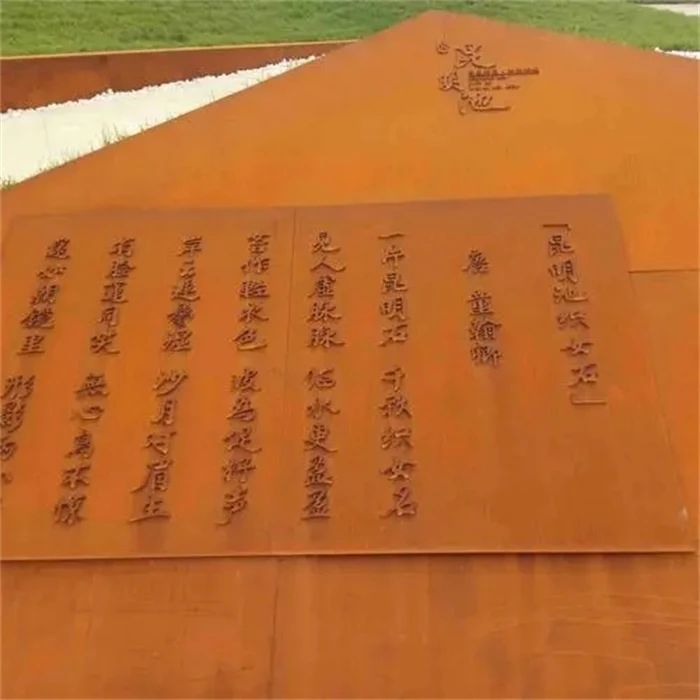 「昆明池织女石」
唐 童翰卿
一片昆明石 千秋织女名
見人虚脉脉 临水更盈盈
苔作 色 波为促杼声
岸云连鬓湿 沙月对眉生
有脸莲同笑 無心鸟不惊
如朝镜里 形影两
昆明池